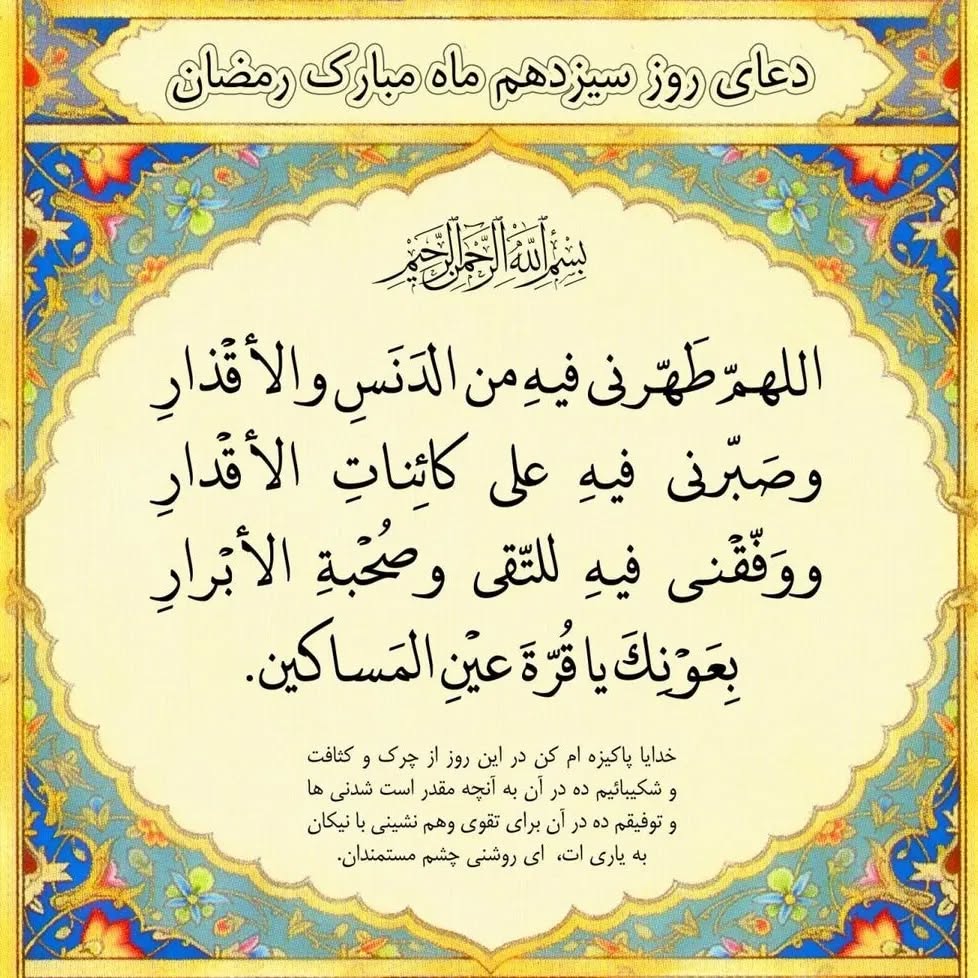 دعای روز سیزدهم ماه مبارک رمضان
بِسْمِ اللَّهِ الرَّحْمَنِ الرَّحِيمِ
اللهمّ طَهّرنی فیهِ من الدَنَسِ والأقْذارِ
وصَبّرنی فیهِ علی کائِناتِ الأقْدارِ
ووَفّقْنی فیهِ للتّقی وصُحْبةِ الأبْرارِ
بِعَوْنِكَ یا قُرّةَ عیْنِ المَساکین.
خدایا پاکیزه ام کن در این روز از چرک و کثافت
و شکیبائیم ده در آن به آنچه مقدر است شدنی ها
و توفیقم ده در آن برای تقوی وهم نشینی با نیکان
به یاری ات، ای روشنی چشم مستمندان.